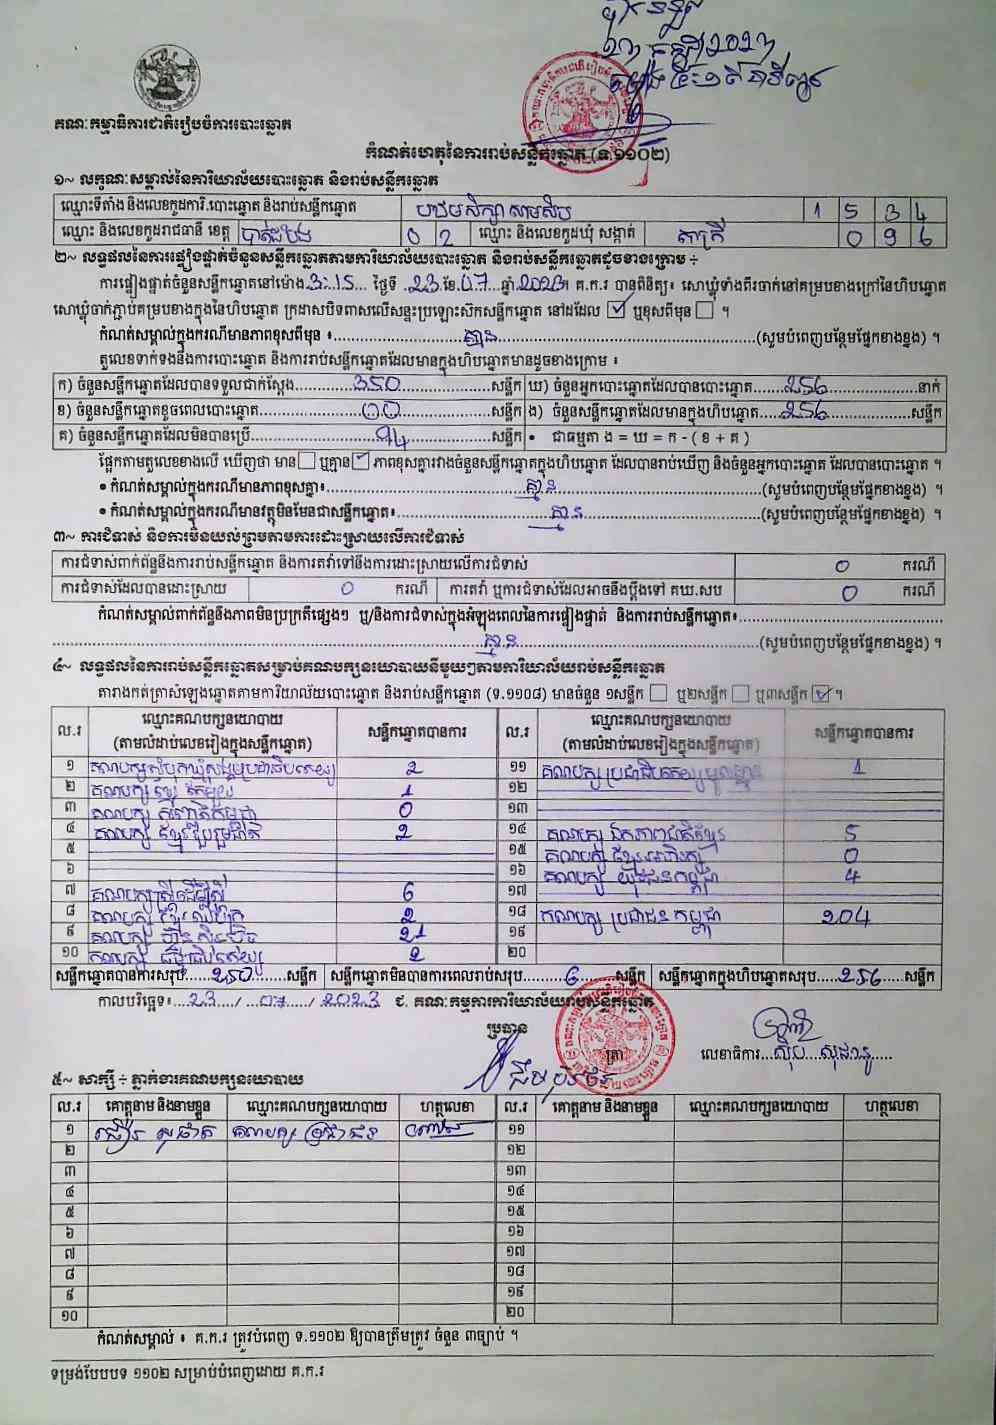 គណៈកម្មាធិការជាតិរៀបចំការបោះឆ្នោត
កំណត់ហេតុនៃការរាប់សន្លឹកឆ្នោត (ទ.១១០២)
១~ លក្ខណៈសម្គាល់នៃការិយាល័យបោះឆ្នោត និងរាប់សន្លឹកឆ្នោត
ឈ្មោះទីតាំង និងលេខកូដការិ.បោះឆ្នោត និងរាប់សន្លឹកឆ្នោត បឋមសិក្សា 1 5 3 4
ឈ្មោះ និងលេខកូដរាជធានី ខេត្ត បាត់ដំបង 0 2 ឈ្មោះ និងលេខកូដឃុំ សង្កាត់ តាគ្រី 0 9 6
២~ លទ្ធផលនៃការផ្ទៀងផ្ទាត់ចំនួនសន្លឹកឆ្នោតតាមការិយាល័យបោះឆ្នោត និងរាប់សន្លឹកឆ្នោតដូចខាងក្រោម ÷
ការផ្ទៀងផ្ទាត់ចំនួនសន្លឹកឆ្នោតនៅម៉ោង 3:15 ថ្ងៃទី 23 ខែ 07 ឆ្នាំ 2023 គ.ក.រ បានពិនិត្យ៖ សោឃ្លុំទាំងពីរចាក់នៅគម្របខាងក្រៅនៃហិបឆ្នោត
សោឃ្លុំចាក់ភ្ជាប់គម្របខាងក្នុងនៃហិបឆ្នោត ក្រដាសបិទពាសលើសន្ទះប្រឡោះស៊កសន្លឹកឆ្នោត នៅដដែល ☑ ឬខុសពីមុន ☐ ។
កំណត់សម្គាល់ក្នុងករណីមានភាពខុសពីមុន ៖ គ្មាន (សូមបំពេញបន្ថែមផ្នែកខាងខ្នង) ។
តួលេខទាក់ទងនឹងការបោះឆ្នោត និងការរាប់សន្លឹកឆ្នោតដែលមានក្នុងហិបឆ្នោតមានដូចខាងក្រោម ៖
ក) ចំនួនសន្លឹកឆ្នោតដែលបានទទួលជាក់ស្តែង 350 សន្លឹក ឃ) ចំនួនអ្នកបោះឆ្នោតដែលបានបោះឆ្នោត 256 នាក់
ខ) ចំនួនសន្លឹកឆ្នោតខូចពេលបោះឆ្នោត 00 សន្លឹក ង) ចំនួនសន្លឹកឆ្នោតដែលមានក្នុងហិបឆ្នោត 256 សន្លឹក
គ) ចំនួនសន្លឹកឆ្នោតដែលមិនបានប្រើ 94 សន្លឹក • ជាធម្មតា ង = ឃ = ក - ( ខ + គ )
ផ្អែកតាមតួលេខខាងលើ ឃើញថា មាន ☐ ឬគ្មាន ☑ ភាពខុសគ្នារវាងចំនួនសន្លឹកឆ្នោតក្នុងហិបឆ្នោត ដែលបានរាប់ឃើញ និងចំនួនអ្នកបោះឆ្នោត ដែលបានបោះឆ្នោត ។
• កំណត់សម្គាល់ក្នុងករណីមានភាពខុសគ្នា៖ គ្មាន (សូមបំពេញបន្ថែមផ្នែកខាងខ្នង) ។
• កំណត់សម្គាល់ក្នុងករណីមានវត្ថុមិនមែនជាសន្លឹកឆ្នោត៖ គ្មាន (សូមបំពេញបន្ថែមផ្នែកខាងខ្នង) ។
៣~ ការជំទាស់ និងការមិនយល់ព្រមតាមការដោះស្រាយលើការជំទាស់
ការជំទាស់ពាក់ព័ន្ធនឹងការរាប់សន្លឹកឆ្នោត និងការតវ៉ាទៅនឹងការដោះស្រាយលើការជំទាស់ 0 ករណី
ការជំទាស់ដែលបានដោះស្រាយ 0 ករណី ការតវ៉ា ឬការជំទាស់ដែលអាចនឹងប្តឹងទៅ គឃ.សប 0 ករណី
កំណត់សម្គាល់ពាក់ព័ន្ធនឹងភាពមិនប្រក្រតីផ្សេងៗ ឬ/និងការជំទាស់ក្នុងអំឡុងពេលនៃការផ្ទៀងផ្ទាត់ និងការរាប់សន្លឹកឆ្នោត៖
គ្មាន (សូមបំពេញបន្ថែមផ្នែកខាងខ្នង) ។
៤~ លទ្ធផលនៃការរាប់សន្លឹកឆ្នោតសម្រាប់គណបក្សនយោបាយនីមួយៗតាមការិយាល័យរាប់សន្លឹកឆ្នោត
តារាងកត់ត្រាសំឡេងឆ្នោតតាមការិយាល័យបោះឆ្នោត និងរាប់សន្លឹកឆ្នោត (ទ.១១០៨) មានចំនួន ១សន្លឹក ☐ ឬ២សន្លឹក ☐ ឬ៣សន្លឹក ☑ ។
ល.រ ឈ្មោះគណបក្សនយោបាយ (តាមលំដាប់លេខរៀងក្នុងសន្លឹកឆ្នោត) សន្លឹកឆ្នោតបានការ ល.រ ឈ្មោះគណបក្សនយោបាយ (តាមលំដាប់លេខរៀងក្នុងសន្លឹកឆ្នោត) សន្លឹកឆ្នោតបានការ
១ គណបក្សសំបុកឃ្មុំសង្គមប្រជាធិបតេយ្យ 2 ១១ គណបក្ស ប្រជាធិបតេយ្យមូលដ្ឋាន 1
២ គណបក្ស ខ្មែរ 1 ១២
៣ គណបក្ស សញ្ជាតិកម្ពុជា 0 ១៣
៤ គណបក្ស ខ្មែររួបរួមជាតិ 2 ១៤ គណបក្ស ឯកភាពជាតិខ្មែរ 5
៥ ១៥ គណបក្ស ខ្មែរអភិរក្ស 0
៦ ១៦ គណបក្ស យុវជនកម្ពុជា 4
៧ គណបក្សស្ត្រីដើម្បីស្ត្រី 6 ១៧
៨ គណបក្ស ខ្មែរឈប់ក្រ 2 ១៨ គណបក្ស ប្រជាជន កម្ពុជា 204
៩ គណបក្ស ហ៊្វុនស៊ិនប៉ិច 21 ១៩
១០ គណបក្ស ធម្មាធិបតេយ្យ 2 ២០
សន្លឹកឆ្នោតបានការសរុប 250 សន្លឹក សន្លឹកឆ្នោតមិនបានការពេលរាប់សរុប 6 សន្លឹក សន្លឹកឆ្នោតក្នុងហិបឆ្នោតសរុប 256 សន្លឹក
កាលបរិច្ឆេទ៖ 23 / 07 / 2023 ជ. គណៈកម្មការការិយាល័យរាប់សន្លឹកឆ្នោត
ប្រធាន
ត្រា
លេខាធិការ
៥~ សាក្សី ÷ ភ្នាក់ងារគណបក្សនយោបាយ
ល.រ គោត្តនាម និងនាមខ្លួន ឈ្មោះគណបក្សនយោបាយ ហត្ថលេខា ល.រ គោត្តនាម និងនាមខ្លួន ឈ្មោះគណបក្សនយោបាយ ហត្ថលេខា
១ គណបក្ស ប្រជាជន ១១
២ ១២
៣ ១៣
៤ ១៤
៥ ១៥
៦ ១៦
៧ ១៧
៨ ១៨
៩ ១៩
១០ ២០
កំណត់សម្គាល់ ៖ គ.ក.រ ត្រូវបំពេញ ទ.១១០២ ឱ្យបានត្រឹមត្រូវ ចំនួន ៣ច្បាប់ ។
ទម្រង់បែបបទ ១១០២ សម្រាប់បំពេញដោយ គ.ក.រ